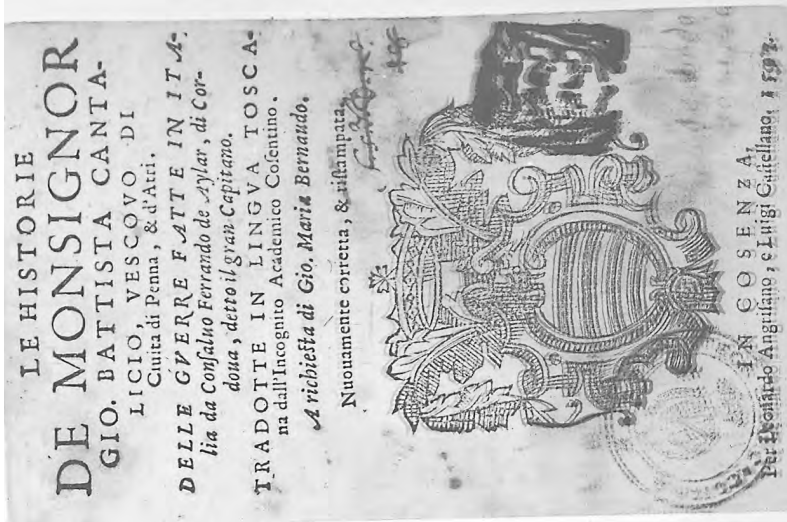 LE HISTORIE
DE MONSIGNOR
GIO. BATTISTA CANTA-
LICIO, VESCOVO DI
Ciuita di Penna, & d'Atri.
DELLE GVERRE FATTE IN ITA-
lia da Conſaluo Ferrando de Aylar, di Cor-
doua, detto il gran Capitano.
TRADOTTE IN LINGVA TOSCA-
na dall'Incognito Academico Coſentino.
A richieſta di Gio. Maria Bernaudo.
Nuouamente corretta, & riſtampata.
IN COSENZA,
Per Leonardo Angriſano, e Luigi Caſtellano, 1597.